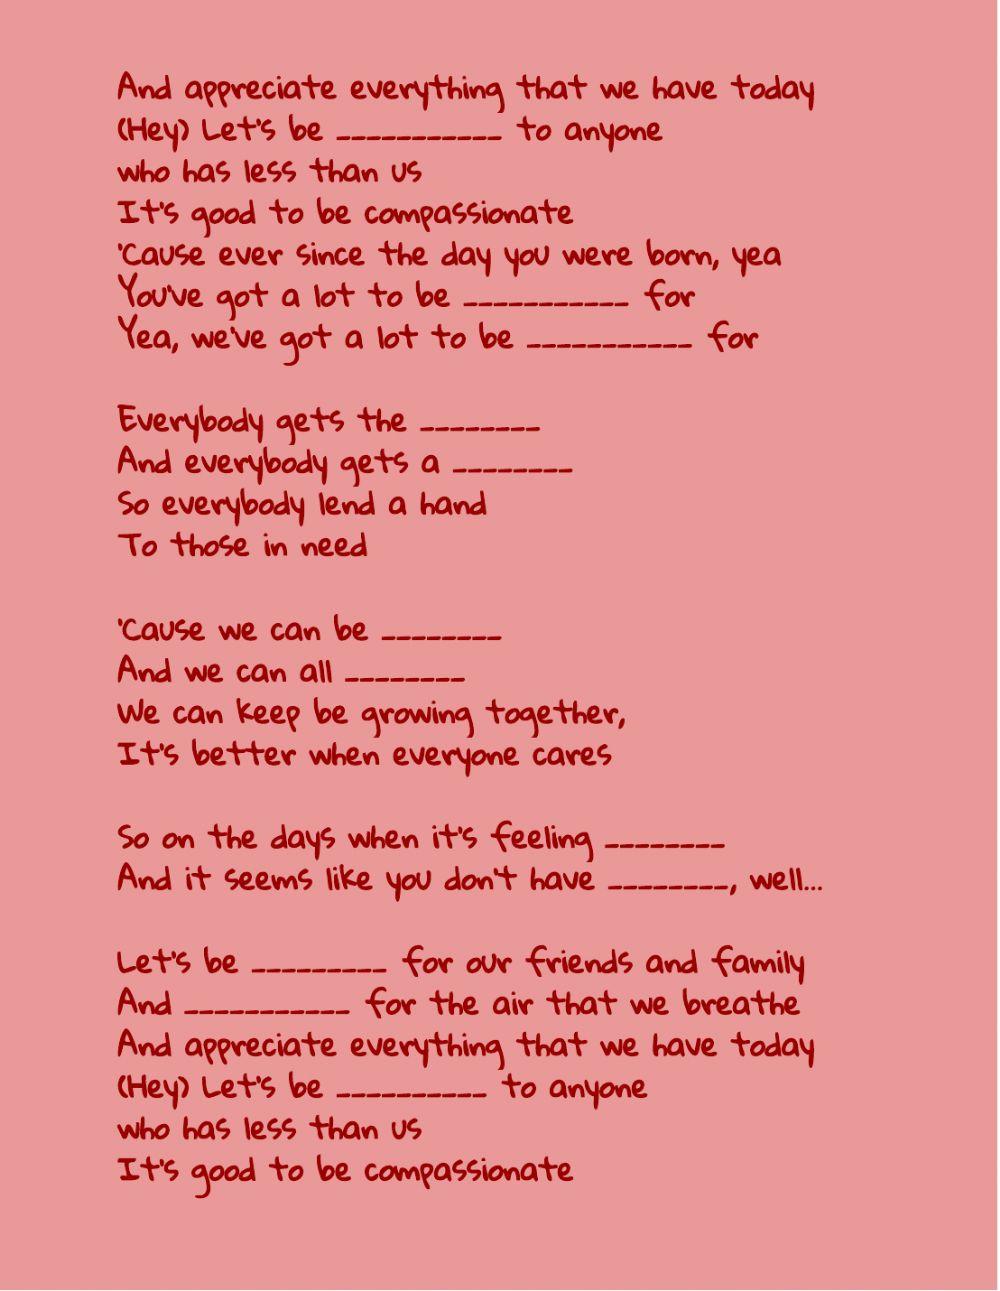 And appreciate everything that we have today
(Hey) Let's be ___________ to anyone
who has less than us
It's good to be compassionate
'Cause ever since the day you were born, yea
You've got a lot to be ___________ for
Yea, we've got a lot to be ___________ for

Everybody gets the ________
And everybody gets a ________
So everybody lend a hand
To those in need

'Cause we can be ________
And we can all ________
We can keep be growing together,
It's better when everyone cares

So on the days when it's feeling ________
And it seems like you don't have ________, well...

Let's be _________ for our friends and family
And ___________ for the air that we breathe
And appreciate everything that we have today
(Hey) Let's be __________ to anyone
who has less than us
It's good to be compassionate